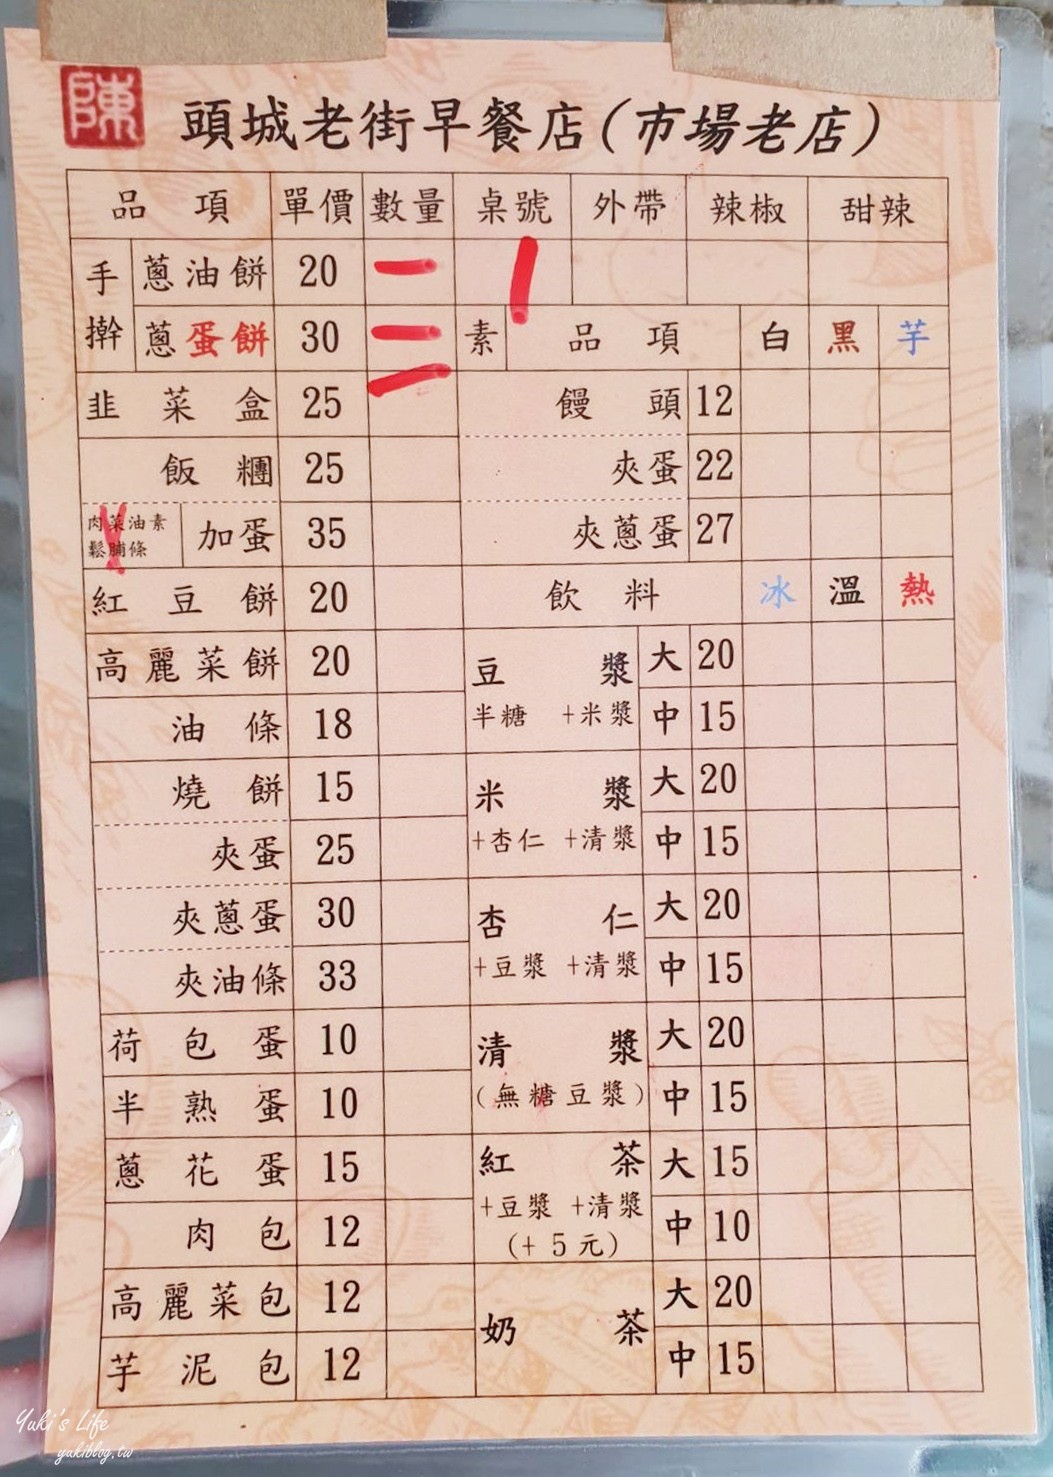 陳
頭城老街早餐店(市場老店)
品項 單價 數量 桌號 外帶 辣椒 甜辣
手擀
蔥油餅 20
蔥蛋餅 30
韭菜盒 25
飯糰 25
肉鬆 菜脯 油條 素 加蛋 35
紅豆餅 20
高麗菜餅 20
油條 18
燒餅 15
夾蛋 25
夾蔥蛋 30
夾油條 33
荷包蛋 10
半熟蛋 10
蔥花蛋 15
肉包 12
高麗菜包 12
芋泥包 12
素 品項 白 黑 芋
饅頭 12
夾蛋 22
夾蔥蛋 27
飲料 冰 溫 熱
豆漿 大 20
半糖 +米漿 中 15
米漿 大 20
+杏仁 +清漿 中 15
杏仁 大 20
+豆漿 +清漿 中 15
清漿 大 20
(無糖豆漿) 中 15
紅茶 大 15
+豆漿 +清漿 中 10
(+5元)
奶茶 大 20
中 15
Yuki's Life
yukiblog.tw